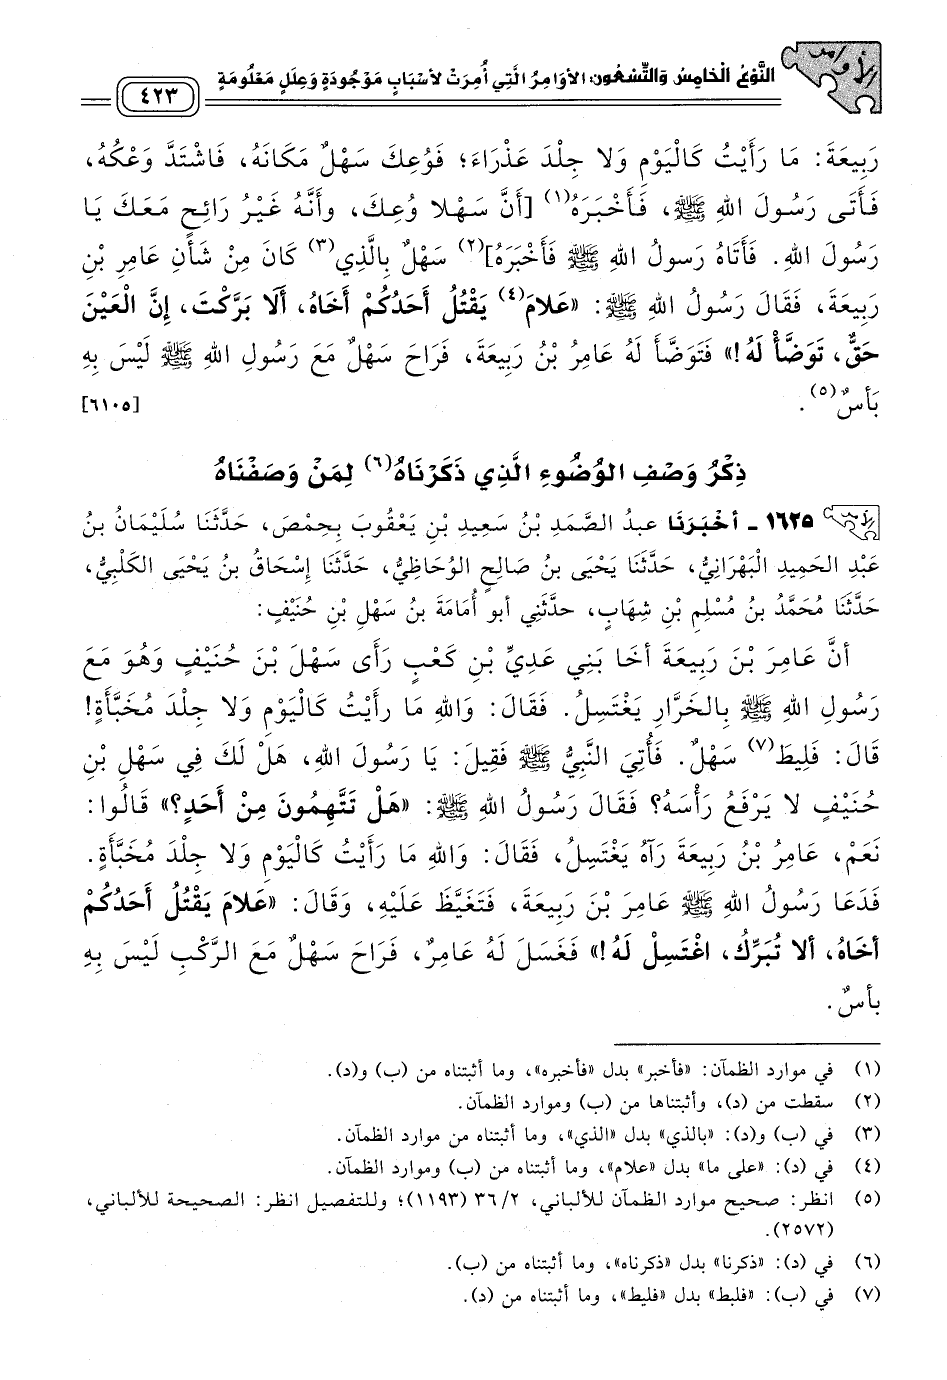 الأوامر
النَّوْعُ الْخَامِسُ وَالتِّسْعُونَ: الأَوَامِرُ الَّتِي أُمِرَتْ لأَسْبَابٍ مَوْجُودَةٍ وَعِلَلٍ مَعْلُومَةٍ
٤٢٣
رَبِيعَةَ: مَا رَأَيْتُ كَالْيَوْمِ وَلا جِلْدَ عَذْرَاءَ؛ فَوُعِكَ سَهْلٌ مَكَانَهُ، فَاشْتَدَّ وَعْكُهُ،
فَأَتَى رَسُولَ اللهِ ﷺ، فَأَخْبَرَهُ(١) [أَنَّ سَهْلا وُعِكَ، وأَنَّهُ غَيْرُ رَائِحٍ مَعَكَ يَا
رَسُولَ اللهِ. فَأَتَاهُ رَسولُ اللهِ ﷺ فَأَخْبَرَهُ](٢) سَهْلٌ بِالَّذِي(٣) كَانَ مِنْ شَأنِ عَامِرِ بْنِ
رَبِيعَةَ، فَقَالَ رَسُولُ اللهِ ﷺ: «عَلامَ(٤) يَقْتُلُ أَحَدُكُمْ أَخَاهُ، أَلَا بَرَّكْتَ، إِنَّ الْعَيْنَ
حَقٌّ، تَوَضَّأْ لَهُ!» فَتَوَضَّأَ لَهُ عَامِرُ بْنُ رَبِيعَةَ، فَرَاحَ سَهْلٌ مَعَ رَسُولِ اللهِ ﷺ لَيْسَ بِهِ
بَأسٌ(٥). [٦١٠٥]
ذِكْرُ وَصْفِ الوُضُوءِ الَّذِي ذَكَرْنَاهُ(٦) لِمَنْ وَصَفْنَاهُ
١٦٢٥ - أَخْبَرَنَا عبدُ الصَّمَدِ بْنُ سَعِيدِ بْنِ يَعْقُوبَ بِحِمْصَ، حَدَّثَنَا سُلَيْمَانُ بنُ
عَبْدِ الحَمِيدِ الْبَهْرَانِيُّ، حَدَّثَنَا يَحْيَى بنُ صَالِحٍ الوُحَاظِيُّ، حَدَّثَنَا إِسْحَاقُ بنُ يَحْيَى الكَلْبِيُّ،
حَدَّثَنَا مُحَمَّدُ بنُ مُسْلِمِ بْنِ شِهَابٍ، حدَّثَنِي أبو أُمَامَةَ بنُ سَهْلِ بْنِ حُنَيْفٍ:
أنَّ عَامِرَ بْنَ رَبِيعَةَ أخَا بَنِي عَدِيِّ بْنِ كَعْبٍ رَأَى سَهْلَ بْنَ حُنَيْفٍ وَهُوَ مَعَ
رَسُولِ اللهِ ﷺ بِالخَرَّارِ يَغْتَسِلُ. فَقَالَ: وَاللهِ مَا رأيْتُ كَالْيَوْمِ وَلا جِلْدَ مُخَبَّأَةٍ!
قَالَ: فَلِيطَ(٧) سَهْلٌ. فَأُتِيَ النَّبِيُّ ﷺ فَقِيلَ: يا رَسُولَ اللهِ، هَلْ لَكَ فِي سَهْلِ بْنِ
حُنَيْفٍ لا يَرْفَعُ رَأْسَهُ؟ فَقَالَ رَسُولُ اللهِ ﷺ: «هَلْ تَتَّهِمُونَ مِنْ أَحَدٍ؟» قَالُوا:
نَعَمْ، عَامِرُ بْنُ رَبِيعَةَ رَآهُ يَغْتَسِلُ، فَقَالَ: وَاللهِ مَا رَأَيْتُ كَالْيَوْمِ وَلا جِلْدَ مُخَبَّأَةٍ.
فَدَعَا رَسُولُ اللهِ ﷺ عَامِرَ بْنَ رَبِيعَةَ، فَتَغَيَّظَ عَلَيْهِ، وَقَالَ: «عَلامَ يَقْتُلُ أَحَدُكُمْ
أخَاهُ، ألا تُبَرِّكُ، اغْتَسِلْ لَهُ!» فَغَسَلَ لَهُ عَامِرٌ، فَرَاحَ سَهْلٌ مَعَ الرَّكْبِ لَيْسَ بِهِ
بأسٌ.
(١) في موارد الظمآن: «فأخبر» بدل «فأخبره»، وما أثبتناه من (ب) و(د).
(٢) سقطت من (د)، وأثبتناها من (ب) وموارد الظمآن.
(٣) في (ب) و(د): «بالذي» بدل «الذي»، وما أثبتناه من موارد الظمآن.
(٤) في (د): «على ما» بدل «علام»، وما أثبتناه من (ب) وموارد الظمآن.
(٥) انظر: صحيح موارد الظمآن للألباني، ٣٦/٢ (١١٩٣)؛ وللتفصيل انظر: الصحيحة للألباني،
(٢٥٧٢).
(٦) في (د): «ذكرنا» بدل «ذكرناه»، وما أثبتناه من (ب).
(٧) في (ب): «فلبط» بدل «فليط»، وما أثبتناه من (د).